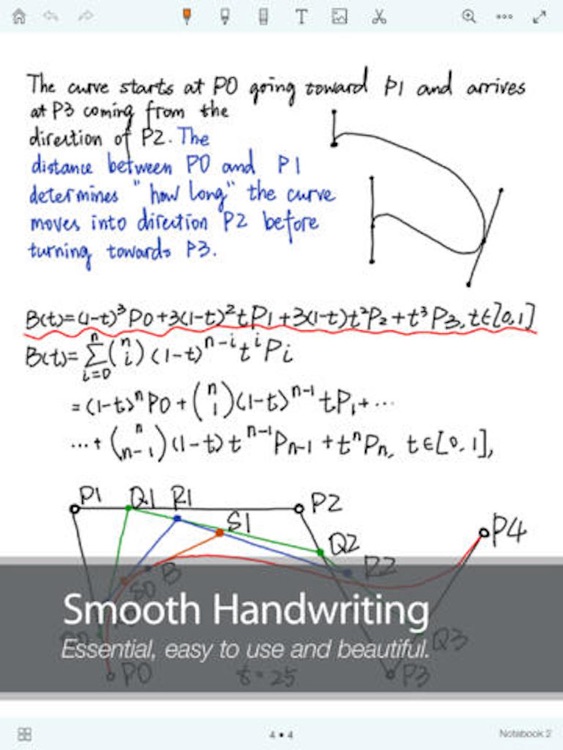 T
The curve starts at P0 going toward P1 and arrives
at P3 coming from the
direction of P2. The
distance between P0 and P1
determines "how long" the curve
moves into direction P2 before
turning towards P3.
B(t)=(1-t)³P0+3(1-t)²tP1+3(1-t)t²P2+t³P3, t∈[0,1]
B(t)=∑ⁿᵢ₌₀(ⁿᵢ)(1-t)ⁿ⁻ⁱtⁱPi
=(1-t)ⁿP0+(ⁿ₁)(1-t)ⁿ⁻¹tP₁+…
…+(ⁿₙ₋₁)(1-t)tⁿ⁻¹Pₙ₋₁+tⁿPₙ, t∈[0,1],
P1 Q1 R1 P2
S1
Q2 P4
R2
S0 B
Smooth Handwriting
Q3
Essential, easy to use and beautiful.
P0 t=25 P3
4 • 4 Notebook 2